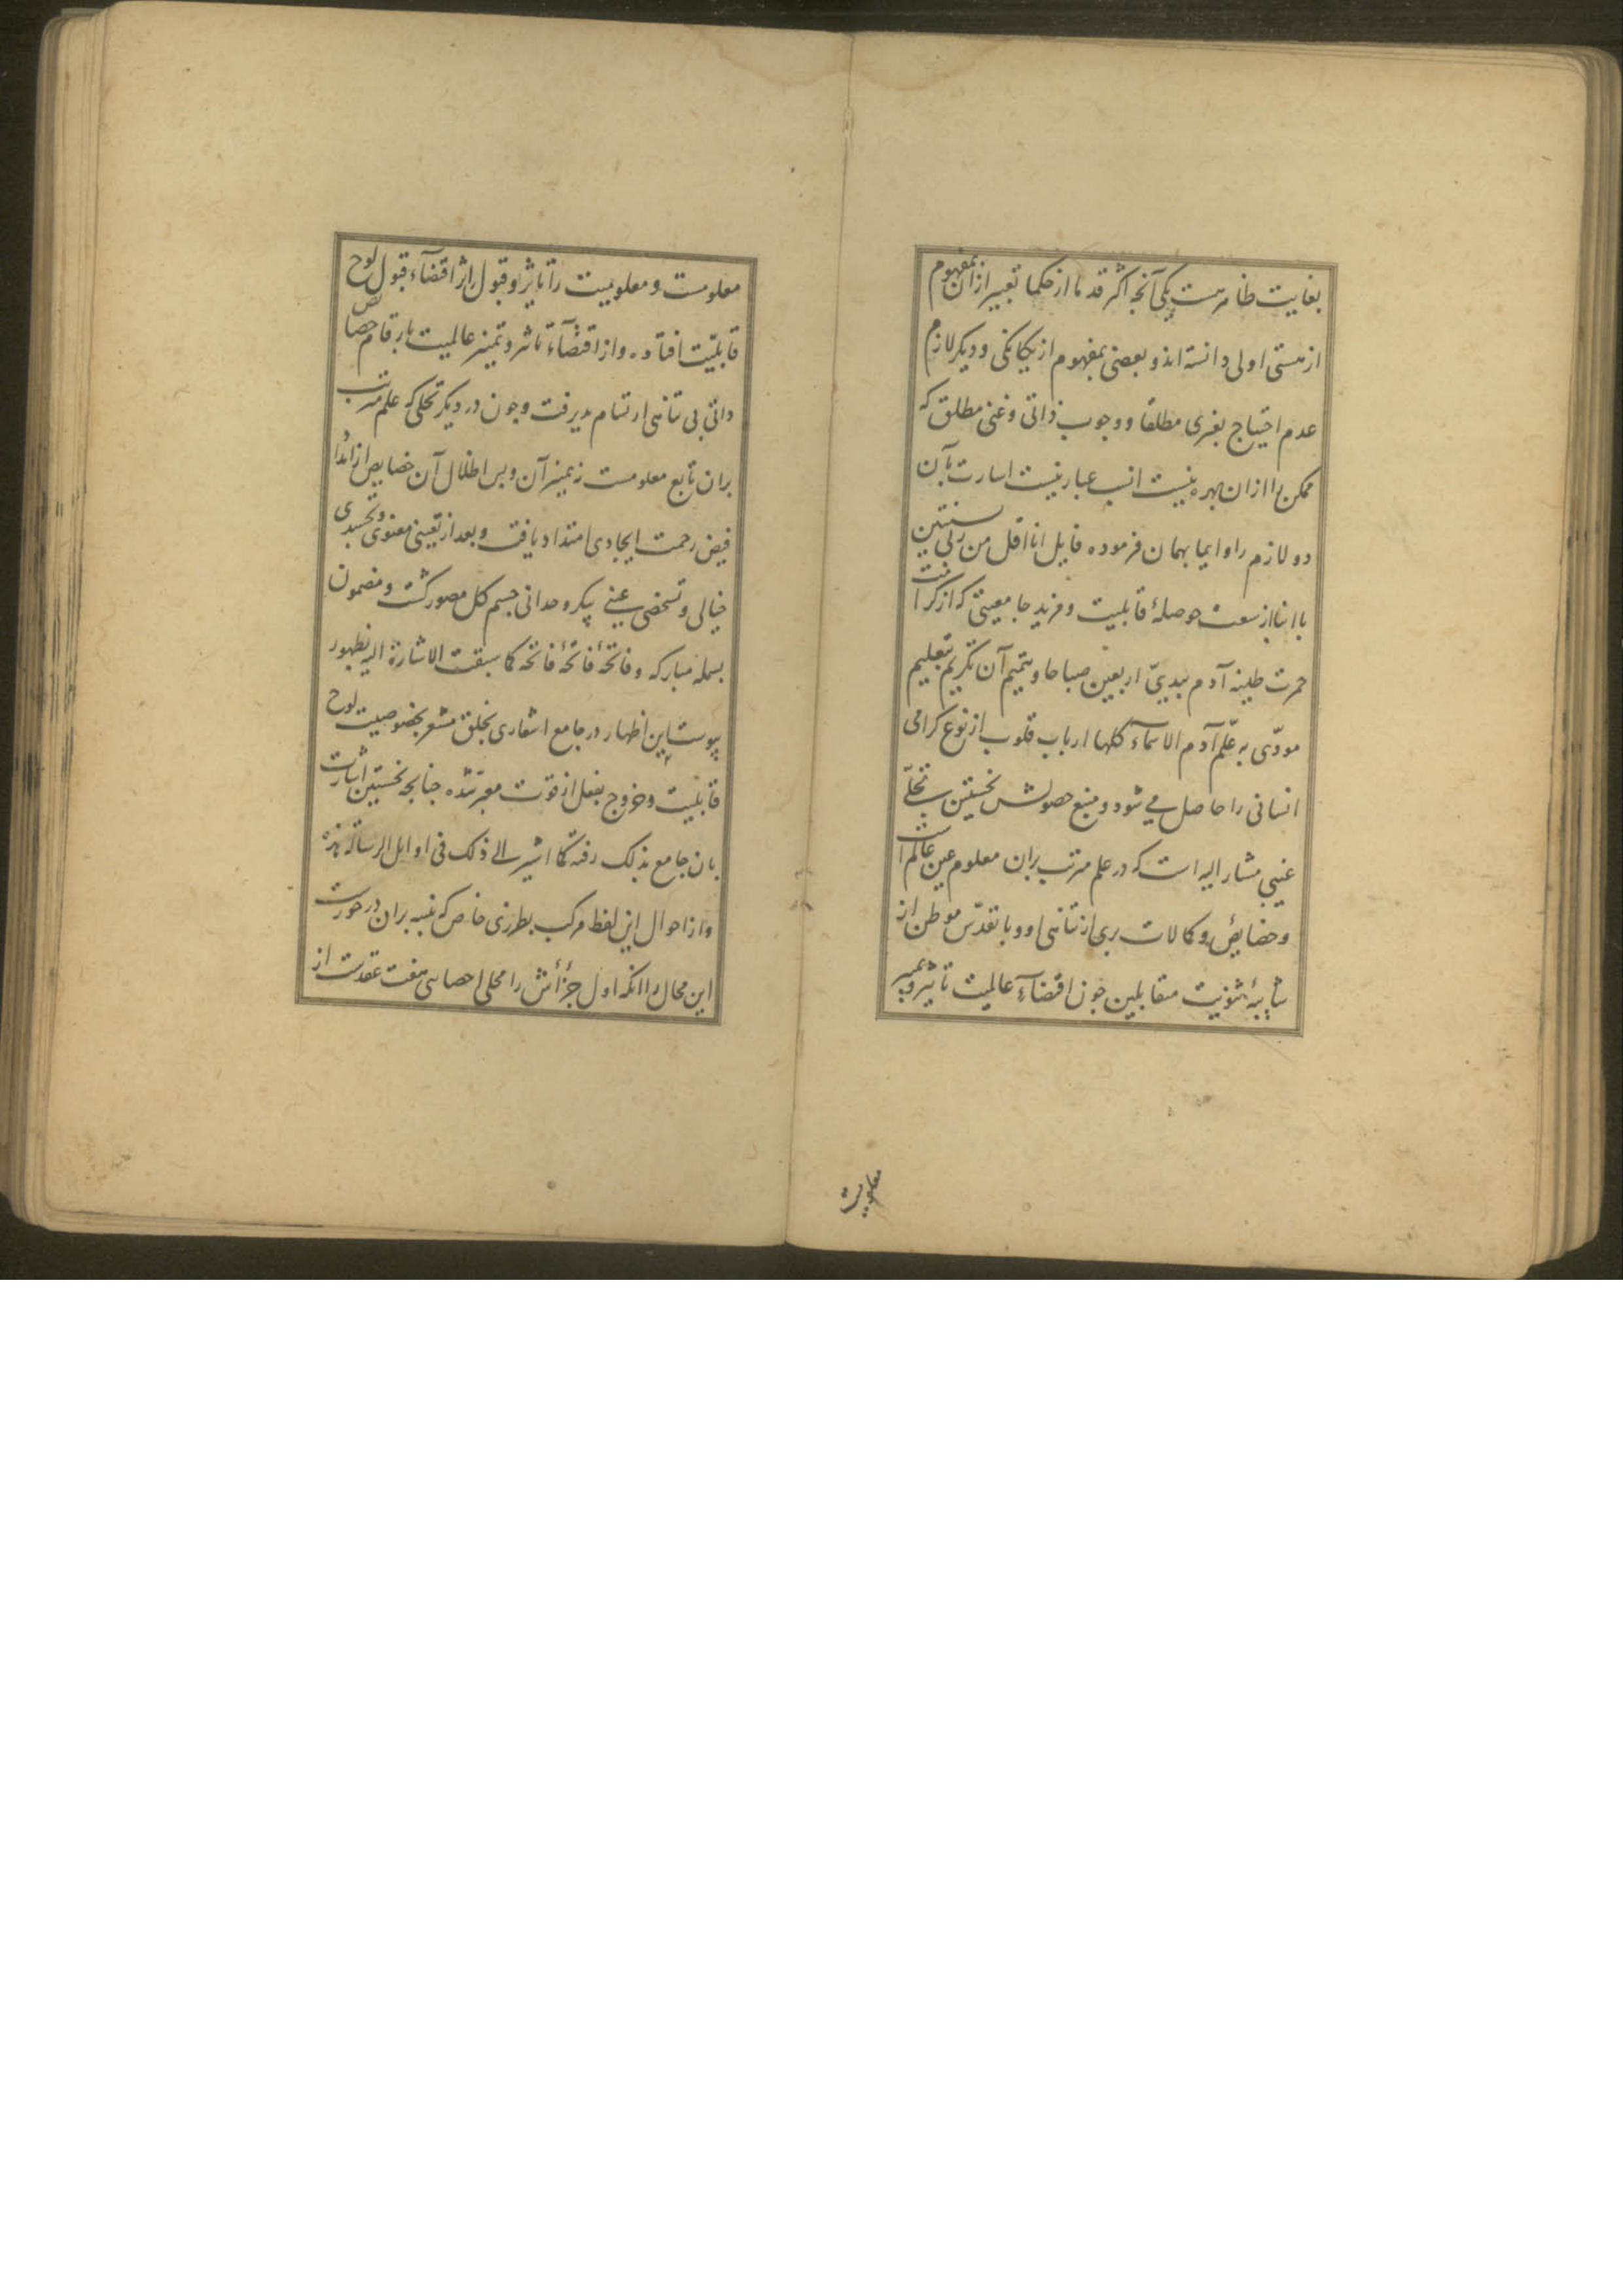 بغایت ظاهرست یکی آنچه اکثر قدما از حکما تعبیر ازان بمفهوم
از هستی اولی دانسته اند و بعضی بمفهوم از یکانکی و دیکر لازم
عدم احتیاج بغیری مطلقا و وجوب ذاتی و غنی مطلق که
ممکن را ازان بهره نیست انسب عبارتیست اشارت بآن
دو لازم را و ایما بهمان فرموده قایل انا اقل من ربی بسنتین
با انباز سعت حوصلهٔ قابلیت و مزید جامعیتی که از کرامت
خمرت طینة آدم بیدیّ اربعین صباحا و تتمیم آن تکریم بتعلیم
مودّی به علّم آدم الاسمآء کلها ارباب قلوب از نوع کرامی
انسانی را حاصل می شود و منبع حصولش نخستین تجلّی
غیبی مشار الیه است که در علم مرتب بران معلوم عین عالم است
و خصایص و کمالات بری از تناهی او و با تقدّس موطن از
شایبهٔ ثنویت متقابلین جون اقتضآء عالمیت تاثیر و تمییز
معلومیت
معلومست و معلومیت را تاثر و قبول اثر اقتضآء قبول لوح
قابلیّت افتاده و از اقتضآء تاثیر و تمییز عالمیت بارقام خصایص
ذاتی بی تناهی ارتسام پذیرفت و جون در دیکر تجلی که علم مرتب
بران تابع معلومست ز تمییز آن و پس اظلال آن خصایص از اندا
فیض رحمت ایجادی امتداد یافت و بعد از تعینی معنوی و تجسدی
خیالی و تشخصی عینی پیکر وحدانی جسم کل مصور کشت و مضمون
بسمله مبارکه و فاتحهٔ فاتحهٔ فاتحه کما سبقت الاشارة الیه بظهور
پیوست این اظهار در جامع اشعاری بخلق مشعر بخصوصیت لوح
قابلیت و خروج بفعل از قوت معبر شده جنانجه نخستین اشارت
بان جامع بذلک رفته کما اشیر الی ذلک فی اوایل الرسالة
و از احوال این لفظ مرکب بطرزی خاص که تنبیه بران درخورست
این محال را انکه اول جزأش را محلی احصایی هفت عقدست از